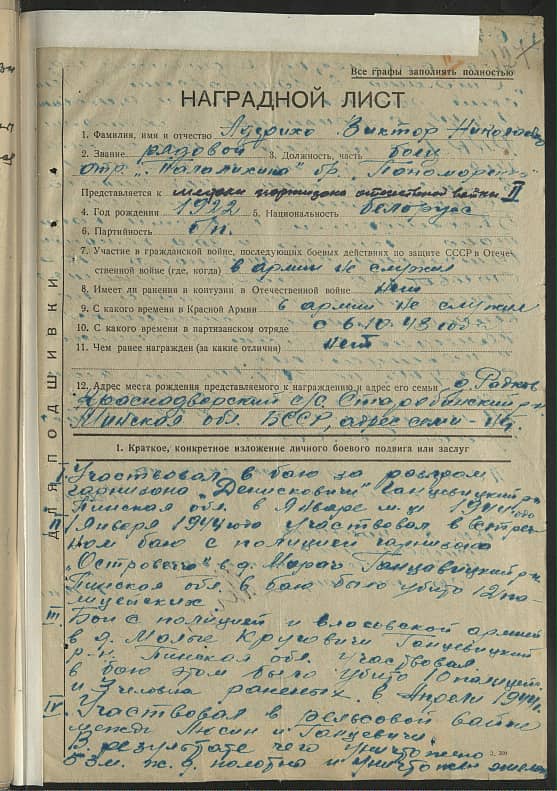 Все графы заполнять полностью
НАГРАДНОЙ ЛИСТ
1. Фамилия, имя и отчество Виктор Николаевич
2. Звание рядовой 3. Должность, часть боец
отр.
Представляется к медали партизана отечественной войны II
4. Год рождения 1922 5. Национальность белорус
6. Партийность б/п.
7. Участие в гражданской войне, последующих боевых действиях по защите СССР в Отече-
ственной войне (где, когда) в армии не служил
8. Имеет ли ранения и контузии в Отечественной войне нет
9. С какого времени в Красной Армии в армии не служил
10. С какого времени в партизанском отряде с 6.10.43 год
11. Чем ранее награжден (за какие отличия) нет
12. Адрес места рождения представляемого к награждению и адрес его семьи д.
Краснодворский с/с Старобинский р-н
Минская обл. БССР, адрес семьи
1. Краткое, конкретное изложение личного боевого подвига или заслуг
I. Участвовал в бою за разгром
гарнизона „Денисковичи" Ганцевицкий р-н
Пинская обл. в Январе м-ц 1944 ого
II Января 1944 ого участвовал в встреч
ном бою с полицией гарнизона
в д. Ганцавицкий р-н
Пинская обл. в бою было убито 12 по-
лицейских.
III Бой с полицией и власовской армией
в д. Малые Круговичи Ганцевицкий
р-н Пинская обл. участвовал
в бою этом было убито 10 полицей.
и раненых. в Апреле 1944 г.
IV. Участвовал в рельсовой войне
между Люсин и Ганцевичи.
В результате чего уничтожено
ж.д. полотна и уничтожен
ДЛЯ ПОДШИВКИ